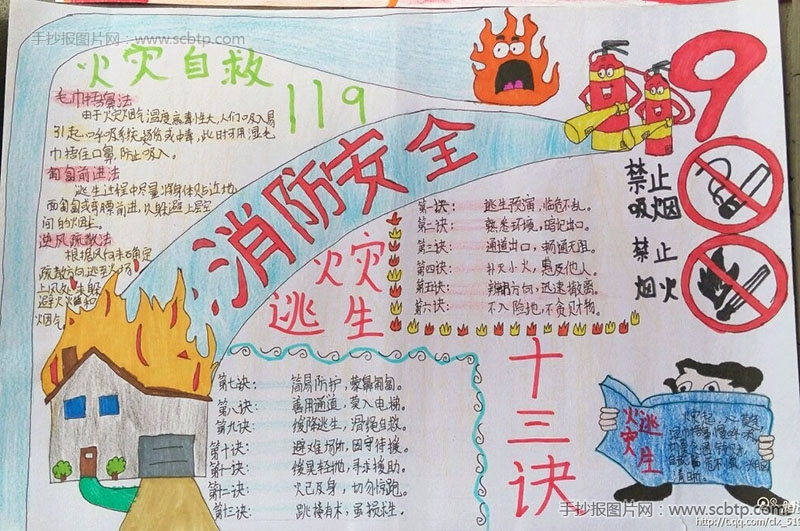 手抄报图片网：www.scbtp.com
火灾自救
119
毛巾捂鼻法
由于火灾烟气温度高毒性大,人们吸入易
引起呼吸系统烫伤或中毒,此时可用湿毛
巾捂住口鼻,防止吸入。
匍匐前进法
逃生过程中尽量将身体贴近地
面匍匐或弯腰前进,火
间的烟尘。
逆风疏散法
根据风向来确定
疏散方向,逃至火场
上风处,来躲
避火焰和
烟气。
消防安全
火灾
逃生
第一诀：逃生预演，临危不乱。
第二诀：熟悉环境，暗记出口。
第三诀：通道出口，畅通无阻。
第四诀：扑灭小火，惠及他人。
第五诀：方向，迅速撤离。
第六诀：不入险地，不贪财物。
9
禁止
吸烟
禁止
烟火
十三诀
第七诀：简易防护，蒙鼻匍匐。
第八诀：善用通道，莫入电梯。
第九诀：缓降逃生，滑绳自救。
第十诀：避难场所，固守待援。
第十一诀：缓晃轻抛，寻求援助。
第十二诀：火已及身，切勿惊跑。
第十三诀：跳楼有术，虽损求生。
火灾
逃生
手抄报图片网：www.scbtp.com